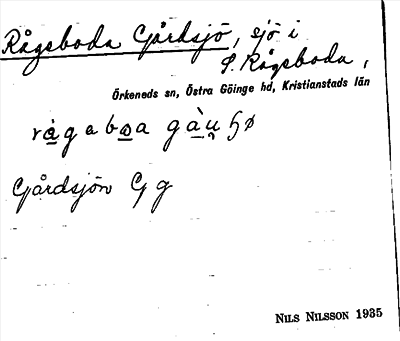 Rågeboda Gårdsjö, sjö i
S. Rågeboda,
Örkeneds sn, Östra Göinge hd, Kristianstads län
Gårdsjön G g
NILS NILSSON 1935